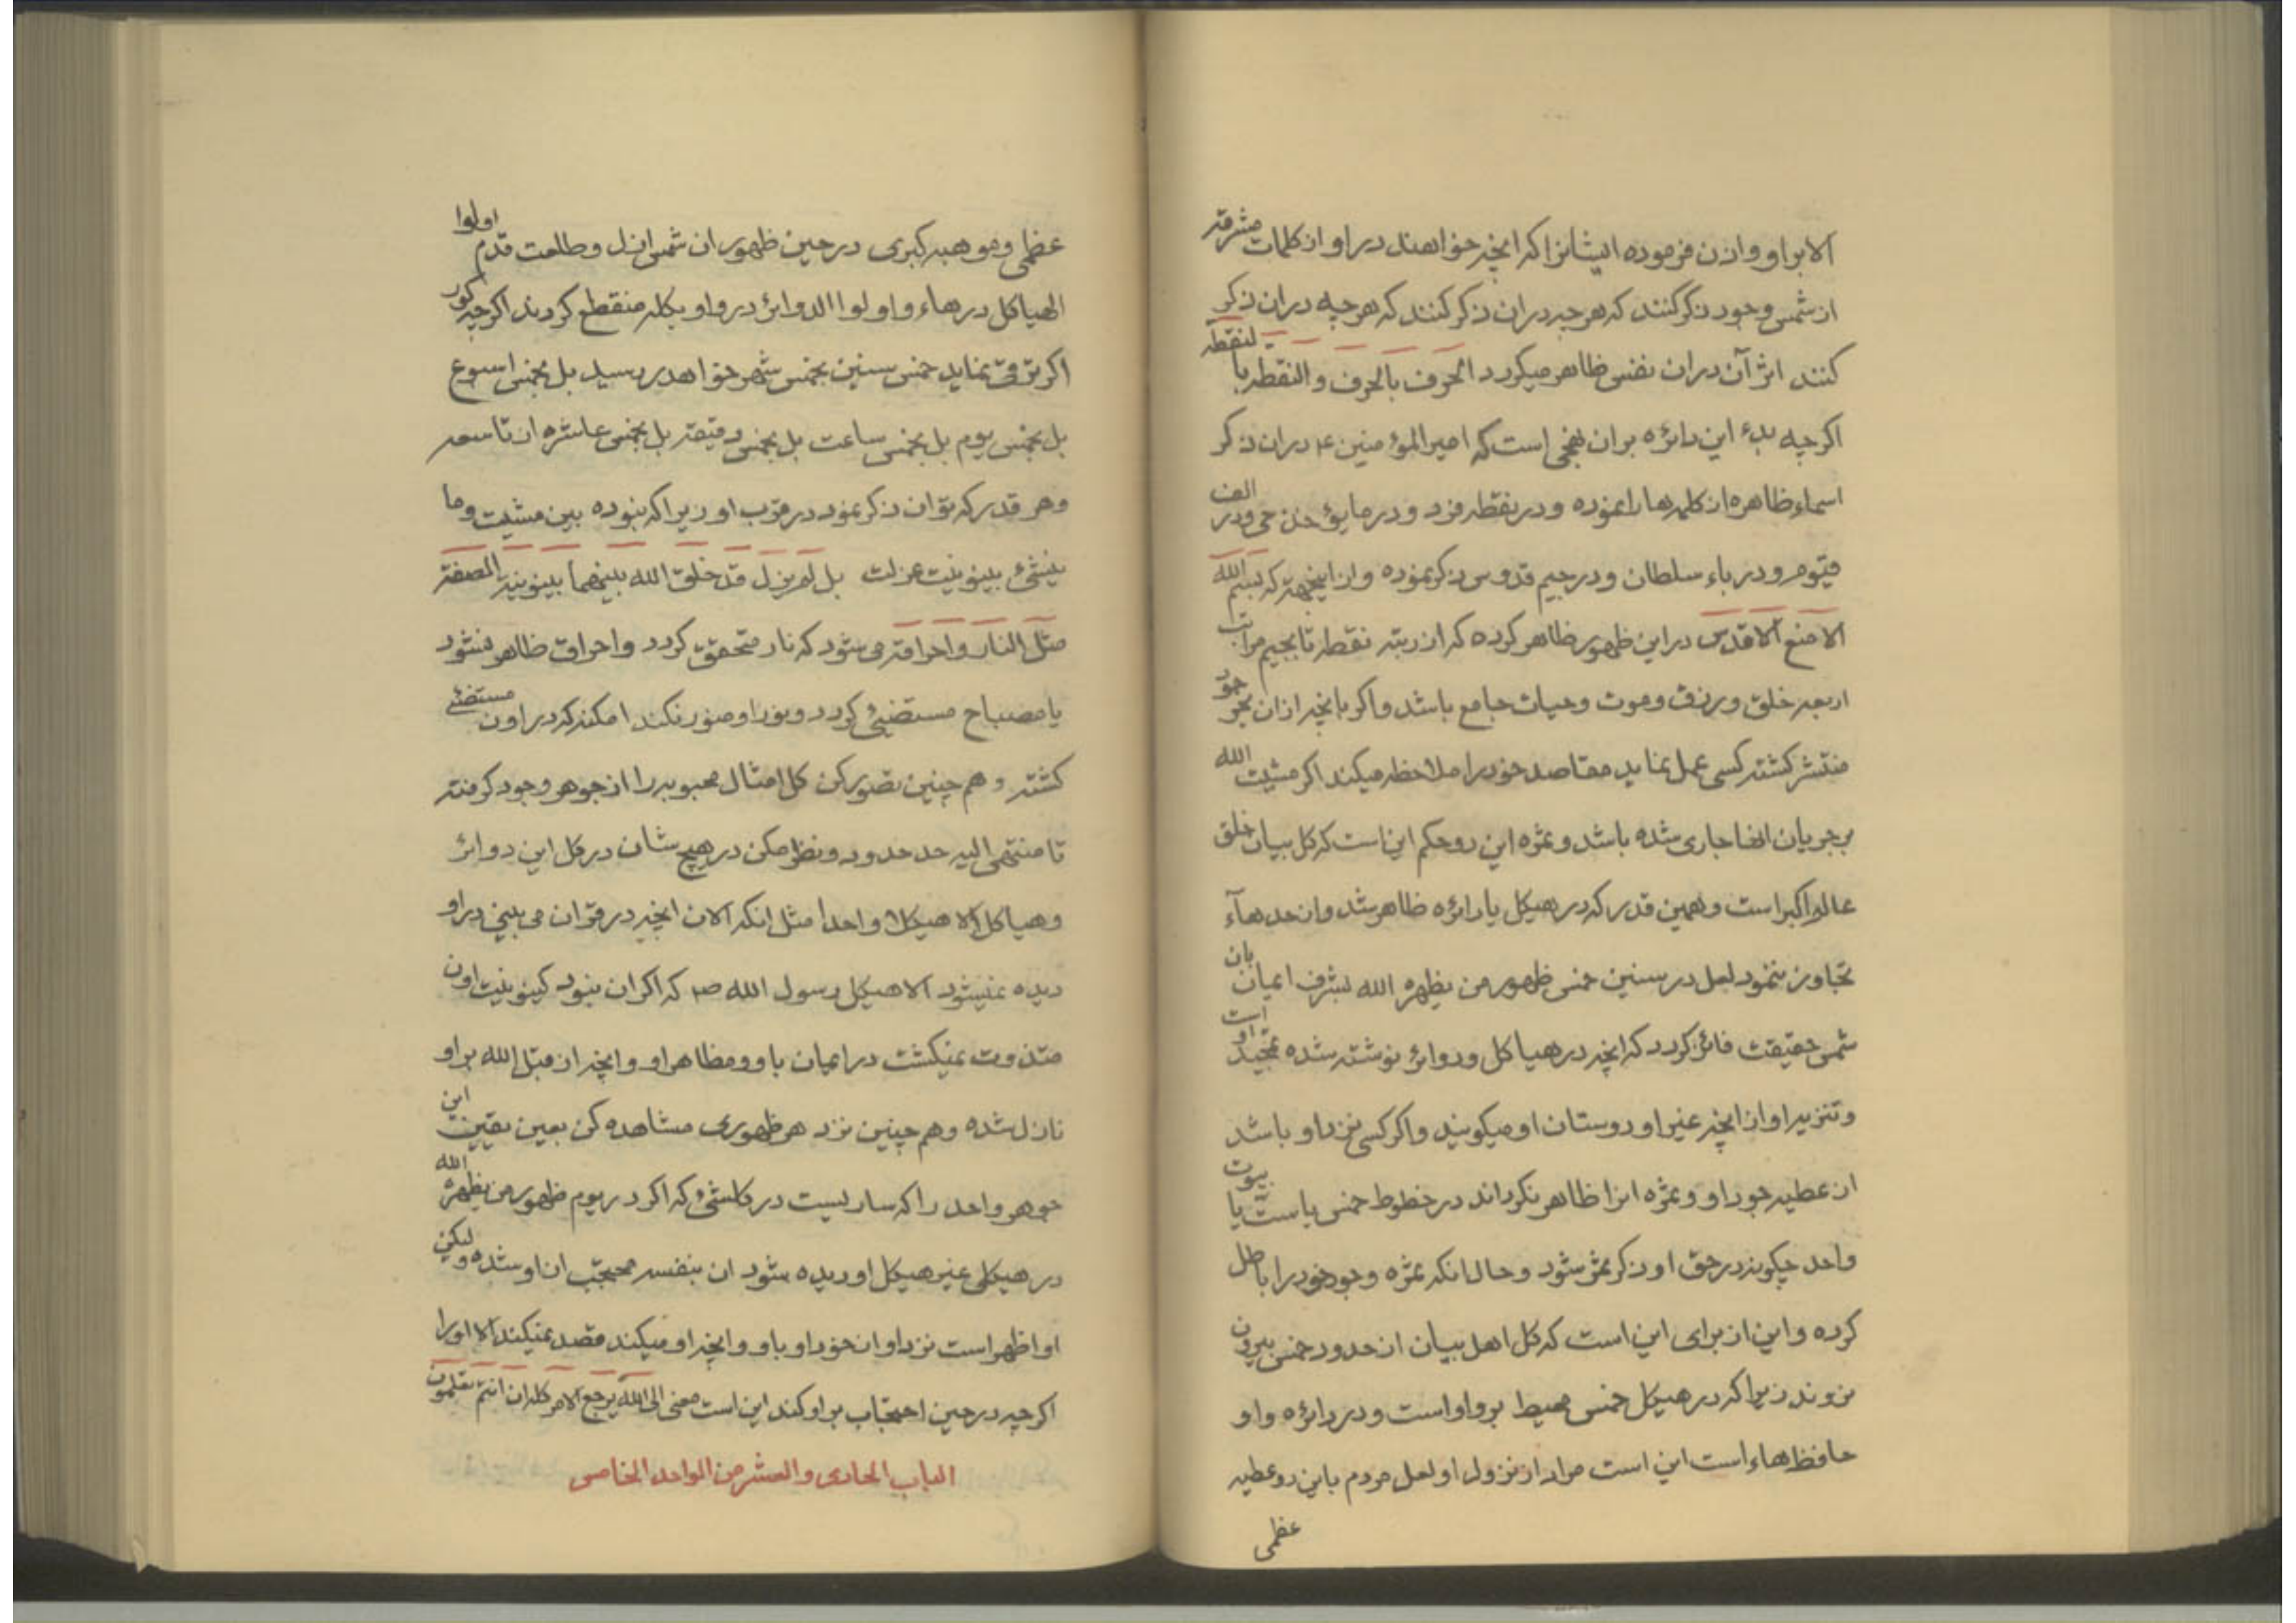 الا براو و اذن فرموده ایشانرا که انچه خواهند در او از کلمات مشرقه
از شمس وجود ذکر کنند که هر چه در ان ذکر کنند که هر چه در ان ذکر
کنند اثر آن در ان نفس ظاهر میکردد الحرف بالحرف و النقطه با لنقطه
اکر چه بدء این دائره بر ان نهجی است که امیر المؤمنین ع در ان ذکر
اسماء ظاهره از کلمه هارا نموده و در نقطه فرد و در مایؤخذ حی و در الف
قیوم و در باء سلطان و در جیم قدوس ذکر نموده و از اینجهة که بسم الله
الامنع الاقدس در این ظهور ظاهر کرده که از رتبه نقطه تا بجیم مراتب
اربعه خلق و رزق و موت و حیات جامع باشد و اکر بانچه از ان بحر جود
منتشر کشته کسی عمل نماید مقاصد خود را ملاحظه میکند اکر مشیت الله
بر جریان انها جاری شده باشد و ثمره این دو حکم این است که کل بیان خلق
عالم اکبر است و همین قدر که در هیکل یا دائره ظاهر شد و از حد هآء
تجاوز ننمود لعل در سنین خمس ظهور من یظهره الله بشرف ایمان بان
شمس حقیقت فائز کردد که انچه در هیاکل و دوائر نوشته شده تمجید او است
و تنزیه او از انچه غیر او دوستان او میکویند و اکر کسی نزد او باشد
از عطیه جود او و ثمره انرا ظاهر نکرداند در خطوط خمس یا ست یا بیوت
واحد چکونه در حق او ذکر ثمر شود و حال انکه ثمره وجود خود را باطل
کرده و این از برای این است که کل اهل بیان از حدود خمس بیرون
نروند زیرا که در هیکل خمس محیط بر واو است و در دائره واو
حافظ هاء است این است مراد از نزول او لعل مردم باین دو عطیه
عظمی
عظمی و موهبه کبری در حین ظهور ان شمس ازل و طلعت قدم اولوا
الهیاکل در هاء و اولوا الدوائر در واو بکله منقطع کردند اکرچه کور
اکر ترقی نماید خمس سنین بخمس شهر خواهد رسید بل بخمس اسبوع
بل بخمس یوم بل بخمس ساعت بل بخمس دقیقه بل بخمس عاشره از تاسعه
و هر قدر که توان ذکر نمود در قرب او زیرا که نبوده بین مشیت و ما
ینشئ بینونیت عزلت بل لم یزل قد خلق الله بینهما بینونیة الصفة
مثل النار و احراقه می شود که نار متحقق کردد و احراق ظاهر نشود
یا مصباح مستضیئ کردد و نور او منور نکند امکنه که در اون مستضئ
کشته و هم چنین تصور کن کل امثال محبوبه را از جوهر وجود کرفته
تا منتهی الیه حد حدود و نظر مکن در هیچ شان در کل این دوائر
و هیاکل الا هیکلا واحدا مثل انکه الان انچه در قران می بینی در او
دیده نمیشود الا هیکل رسول الله ص که اکر ان نبود کینونیت اون
متذوت نمیکشت در ایمان باو و مظاهر او و انچه از قبل الله بر او
نازل شده و هم چنین نزد هر ظهوری مشاهده کن بعین یقین این
جوهر واحد را که ساریست در کلشئ که اکر در یوم ظهور من یظهره الله
در هیکلی غیر هیکل او دیده شود ان بنفسه محتجب از او شده و لیکن
او اظهر است نزد او از خود او باو و انچه او میکند قصد نمیکند الا او را
اکر چه در حین احتجاب بر او کند این است معنی الی الله یرجع الامر کله ان انتم تعلمون
الباب الحادی و العشر من الواحد الخامس